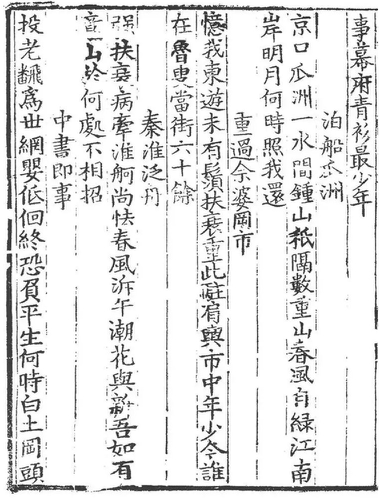 事幕府青衫最少年
泊船瓜洲
京口瓜洲一水間鍾山秖隔數重山春風自綠江南
岸明月何時照我還
重過余婆岡市
憶我東遊未有鬚扶衰重此駐肩輿市中年少今誰
在魯叟當街六十餘
秦淮泛舟
強扶衰病牽淮舸尚怯春風泝午潮花與新吾如有
意山於何處不相招
中書即事
投老翻爲世網嬰低佪終恐負平生何時白土岡頭